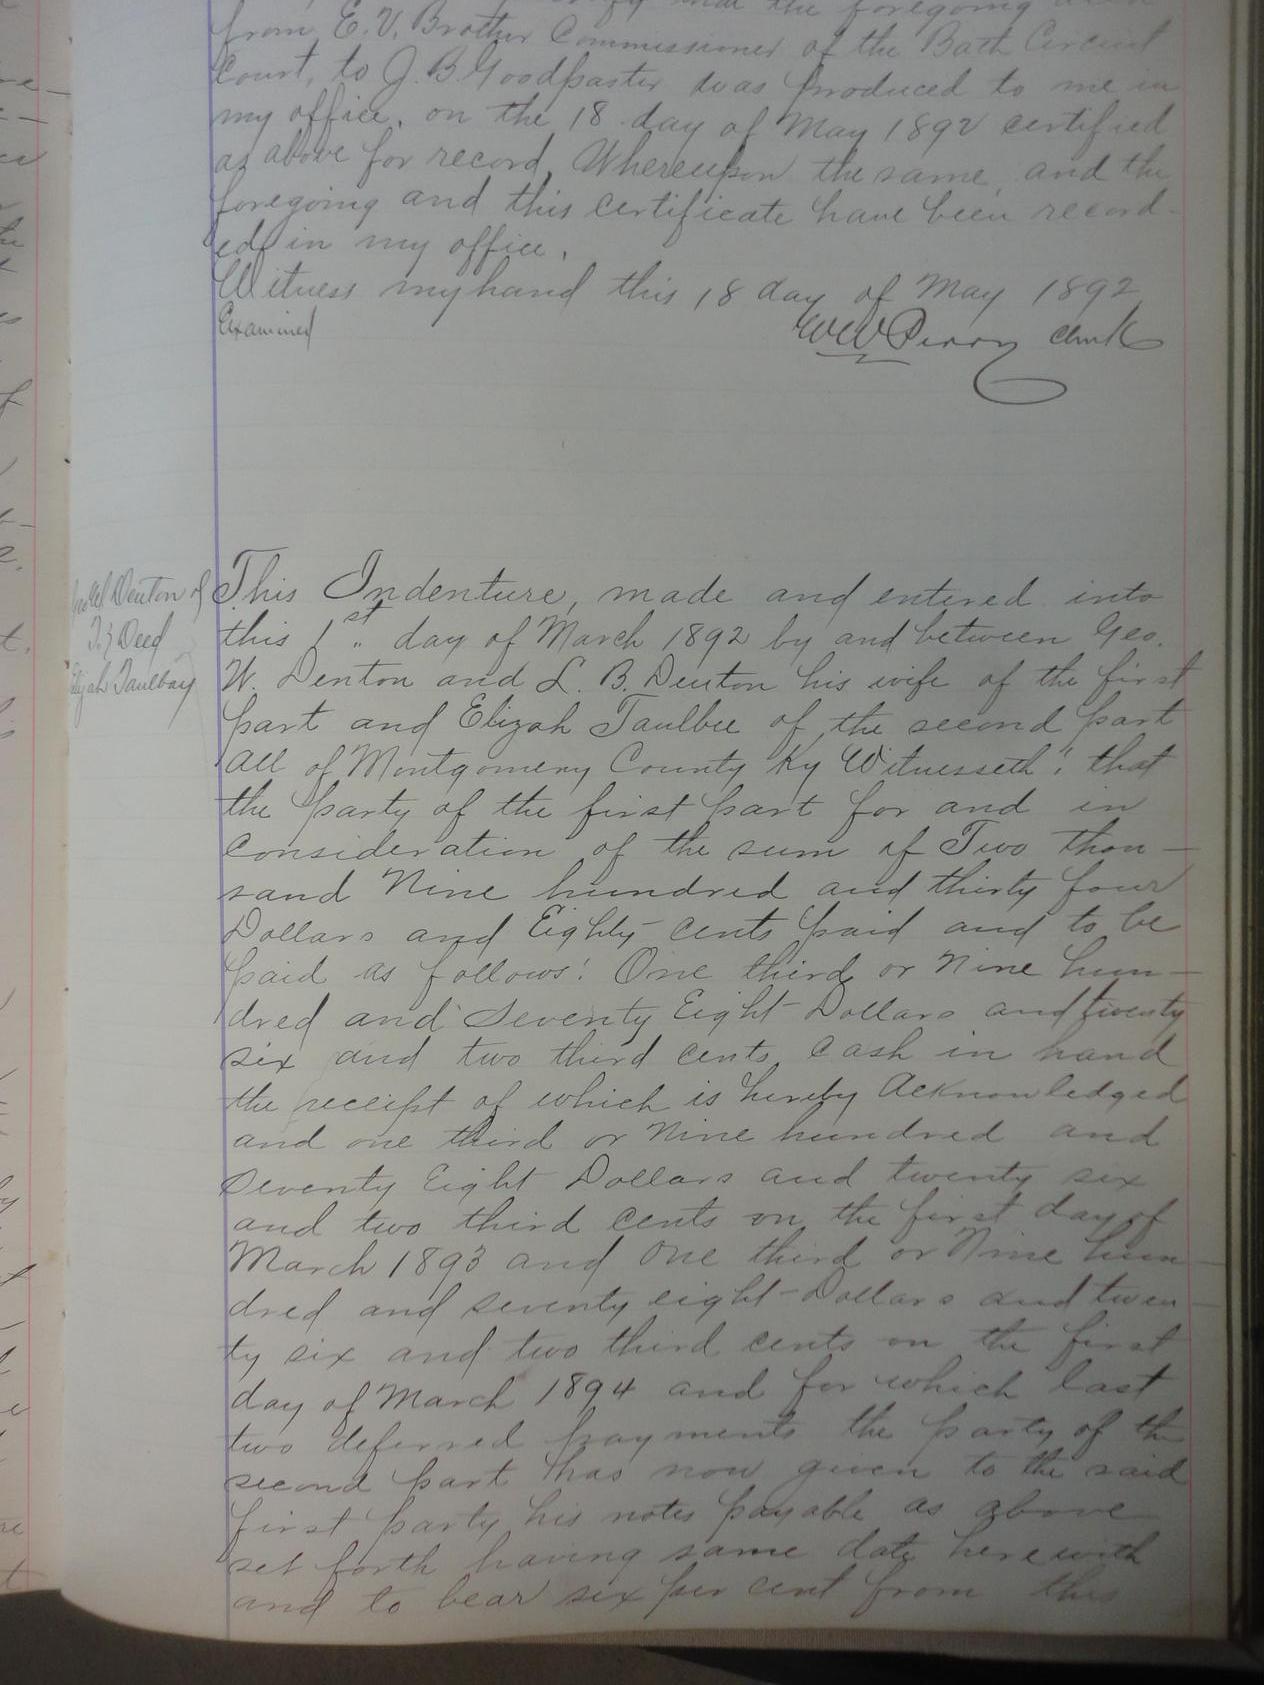 the foregoing
from E. V. Brother Commissioner of the Bath Circuit
Court, to J. B. Goodpaster was produced to me in
my office, on the 18 day of May 1892 certified
as above for record, Whereupon the same, and the
foregoing and this certificate have been record-
ed in my office.
Witness my hand this 18 day of May 1892
Examined
W W Perry Clerk
Denton of
To } Deed
Elijah Taulbay
This Indenture, made and entered into
this 1st day of March 1892 by and between Geo.
W. Denton and L. B. Denton his wife of the first
part and Elizah Taulbee of the second part
All of Montgomery County Ky Witnesseth: that
the party of the first part for and in
Consideration of the sum of Two thou-
sand Nine hundred and thirty four
Dollars and Eighty cents paid and to be
paid as follows: One third or Nine hun-
dred and Seventy Eight Dollars and twenty
six and two third cents Cash in hand
the receipt of which is hereby Acknowledged
and one third or Nine hundred and
Seventy Eight Dollars and twenty six
and two third cents on the first day of
March 1893 and One third or Nine hun-
dred and seventy eight Dollars and twen-
ty six and two third cents on the first
day of March 1894 and for which last
two deferred payments the party of the
second part has now given to the said
first party his notes payable as above
set forth having same date herewith
and to bear six per cent from this